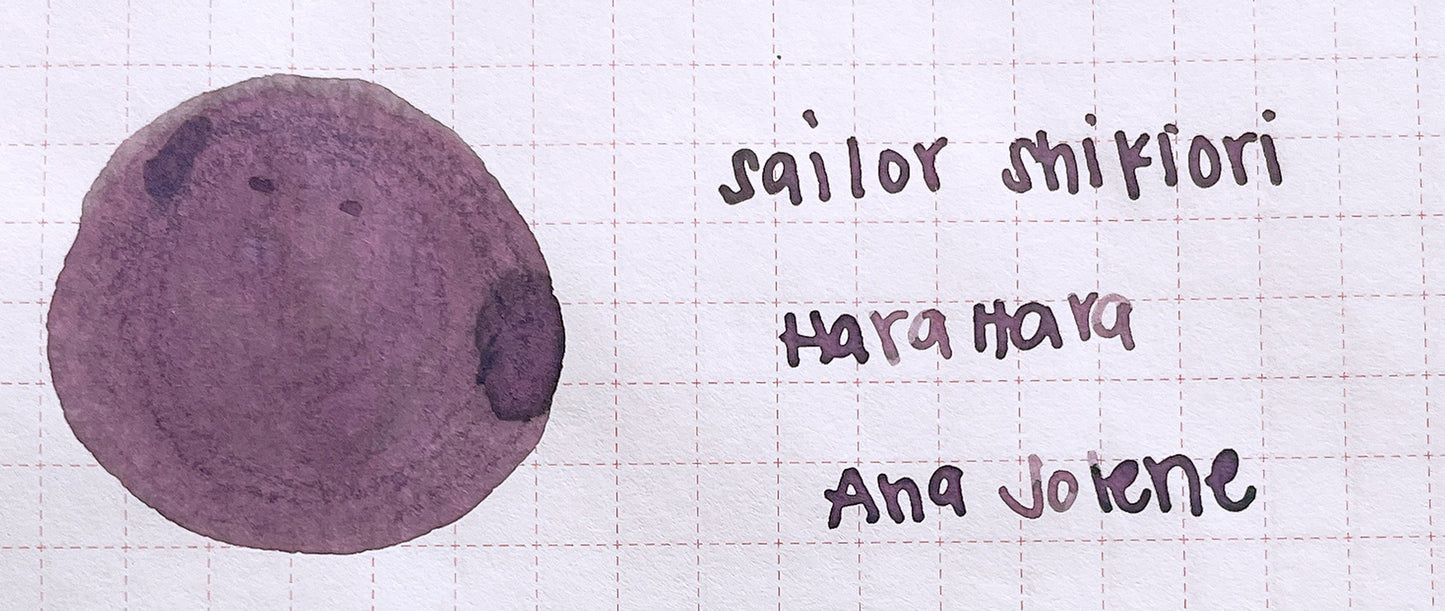 sailor shikiori
HaraHara
Ana Jolene